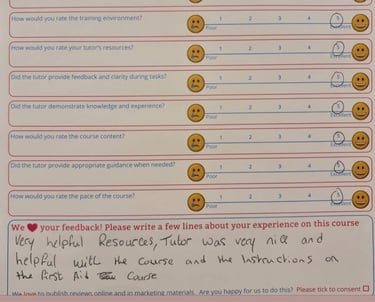 How would you rate the training environment? 1 2 3 4 5
Poor Excellent
How would you rate your tutor's resources? 1 2 3 4 5
Poor Excellent
Did the tutor provide feedback and clarity during tasks? 1 2 3 4 5
Poor Excellent
Did the tutor demonstrate knowledge and experience? 1 2 3 4 5
Poor Excellent
How would you rate the course content? 1 2 3 4 5
Poor Excellent
Did the tutor provide appropriate guidance when needed? 1 2 3 4 5
Poor Excellent
How would you rate the pace of the course? 1 2 3 4 5
Poor Excellent
We ❤ your feedback! Please write a few lines about your experience on this course
Very helpful Resources, Tutor was very nice and
helpful with the course and the Instructions on
the First Aid Course
We love to publish reviews online and as marketing materials. Are you happy for us to do this? Please tick to consent